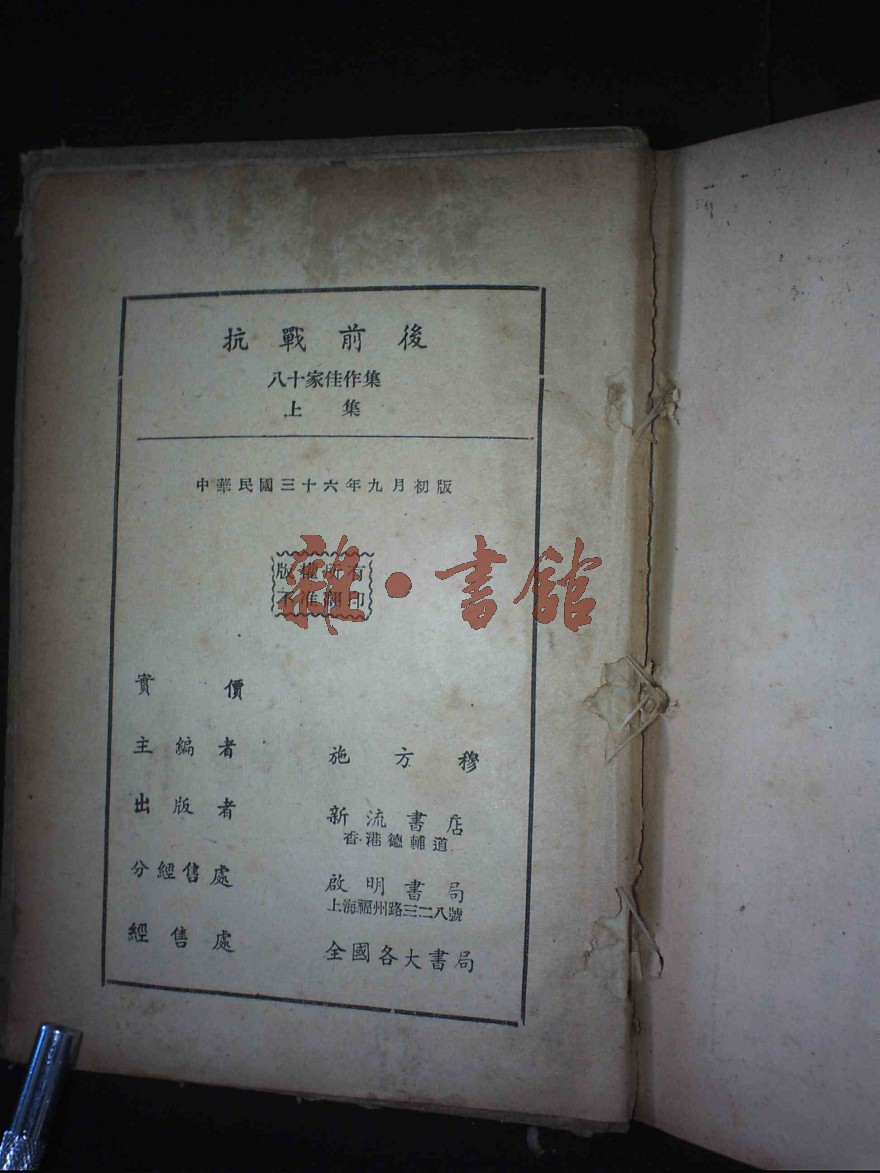 抗戰前後
八十家佳作集
上集
中華民國三十六年九月初版
版權所有
不准翻印
雜·書館
實價
主編者 施方穆
出版者 新流書店
香港德輔道
分經售處 啟明書局
上海福州路三二八號
經售處 全國各大書局